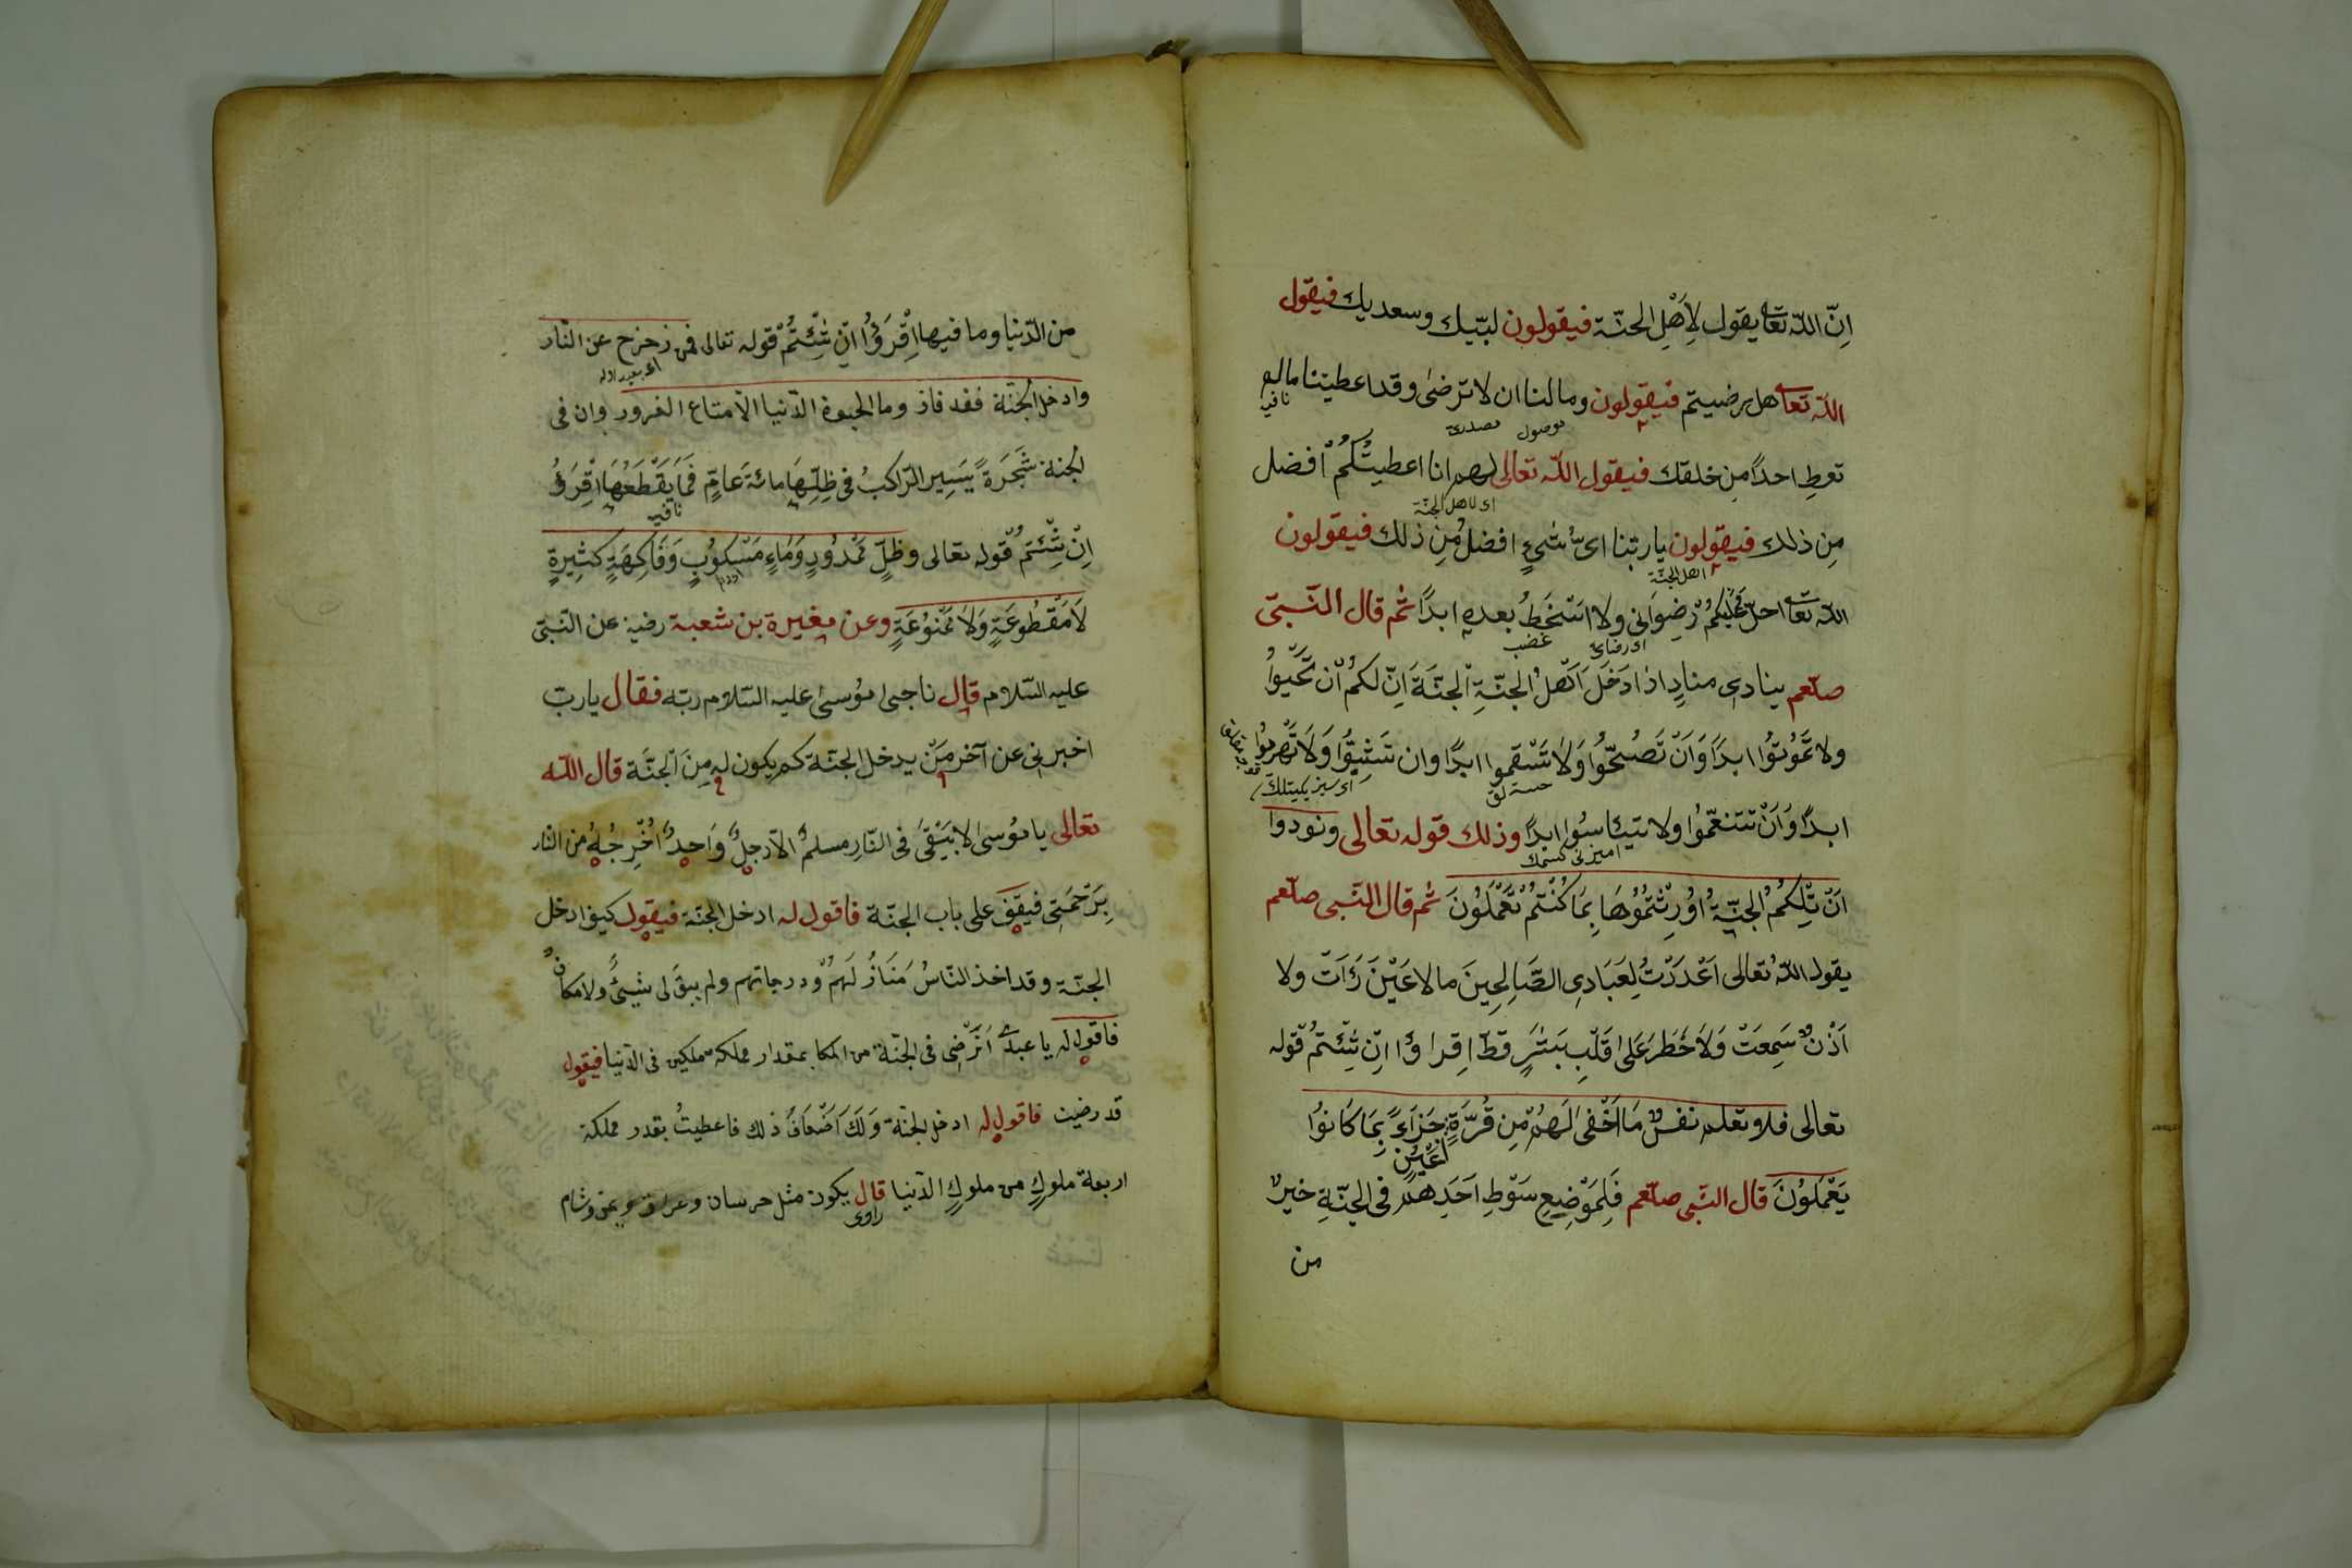 اِنّ اللّه تعا يقول لِأَهْلِ الجنّة فيقولون لبّيك وسعديك فيقول
اللّه تعا هل رضيتم فيقولون وما لنا ان لا ترضىٰ وقد اعطيتنا مالم
نافيه
موصول مصدريه
تعطِ احدًا مِن خلقك فيقول اللّه تعالى لهم انا اعطيتُكُمْ افضل
اى لاهل الجنّة
مِن ذلك فيقولون يا ربّنا اىُّ شىءٍ افضلُ مِن ذلك فيقولون
اهل الجنّة
اللّه تعا احلّ عليكُمْ رِضوَانى ولا اسْخَطُ بعده ابدًا ثم قال النّبىّ
اى رضائى غضب
صلّعم ينادى منادٍ اذا دَخَلَ اَهْلُ الجنّةِ الجنّةَ اِنّ لكمْ اَنْ تَحَيّوْا
ولا تَمُوتُوْا ابدًا وَاَنْ تَصُحّوُا وَلَا تَسْقموا ابدًا وان تَشِبّوُا وَلَا تَهْرموُا
خسته لق
ابدًا وَاَنْ تتنعّموُا ولا تيئاسوُا ابدًا وذلك قوله تعالى ونودوا
اَنْ تِلْكُمُ الجنّةُ اوُرِثْتمُوُهَا بِمَا كُنْتُمْ تَعْمَلُوُنَ ثم قال النّبى صلّعم
يقول اللّهُ تعالى اَعْدَدْتُ لِعَبَادِى الصَّالِحِينَ مالا عَيْنَ رَاَتْ ولا
اُذْنٌ سَمِعَتْ وَلَا خَطَرَ عَلىٰ قَلْبِ بَشَرٍ قطّ اِقراؤا اِنْ شِئْتُمْ قوله
تعالى فلا تعلم نفسٌ مَا اُخْفىَ لَهُمْ مِن قُرَّةِ جَزَاءً بِمَا كَانوُا
اَعْيُنٍ
يَعْمَلوُنَ قال النّبى صلّعم فَلِمَوْضِعِ سَوْطِ اَحَدِهِمْ فى الجنّةِ خيرٌ
من
من الدّنيا وما فيها اِقْرَؤُا اِنْ شِئْتُمْ قوله تعالى فمن زحزح عن النّار
وادخل الجنّة فقد فاز وما الحيوة الدّنيا الّا متاع الغرور وان فى
الجنة شَجَرَةً يَسِير الرّاكبُ فى ظِلِّهَا مائة عَامٍ فَمَا يَقْطَعُهَا اِقْرَؤُ
نافيه
اِنْ شِئتمُ قوله تعالى وظلٍّ مَمْدُودٍ وَمَاءٍ مَسْكوُبٍ وَفَاكِهَةٍ كثِيرةٍ
لَا مَقْطُوعَةٍ وَلَا مَمْنوُعَةٍ وعن مغيرة بن شعبة رضيه عن النّبىّ
عليه السّلام قال ناجى موُسىٰ عليه السّلام ربّه فقال يا ربّ
اخبرنى عن آخر مَنْ يدخل الجنّة كم يكون له مِنَ الْجنّة قال اللّه
تعالى يا موُسىٰ لا يَبْقىَ فى النّارِ مسلمٌ الّا رجلٌ وَاحِدٌ اُخْرِجُهُ من النّار
بِرَحْمَتِى فيقِف على باب الجنّة فاقول له ادخل الجنّة فيقول كيف ادخل
الجنّة وقد اخذ النّاسُ مَنَازِلَهُمْ ودرجاتهم ولم يبقَ لى شيئٌ ولا مكانٌ
فاقول له يا عبدى اَتَرْضِى فى الجنّة من المكا بمقدار مملكه مملكين فى الدّنيا فيقول
قد رضيت فاقول له ادخل الجنّة وَلَكَ اَضْعَافُ ذلك فاعطيتُ بقدر مملكة
اربعة ملوكٍ من ملوكِ الدّنيا قال يكون مثل حرسان وعراق ويمن وشام
راوى